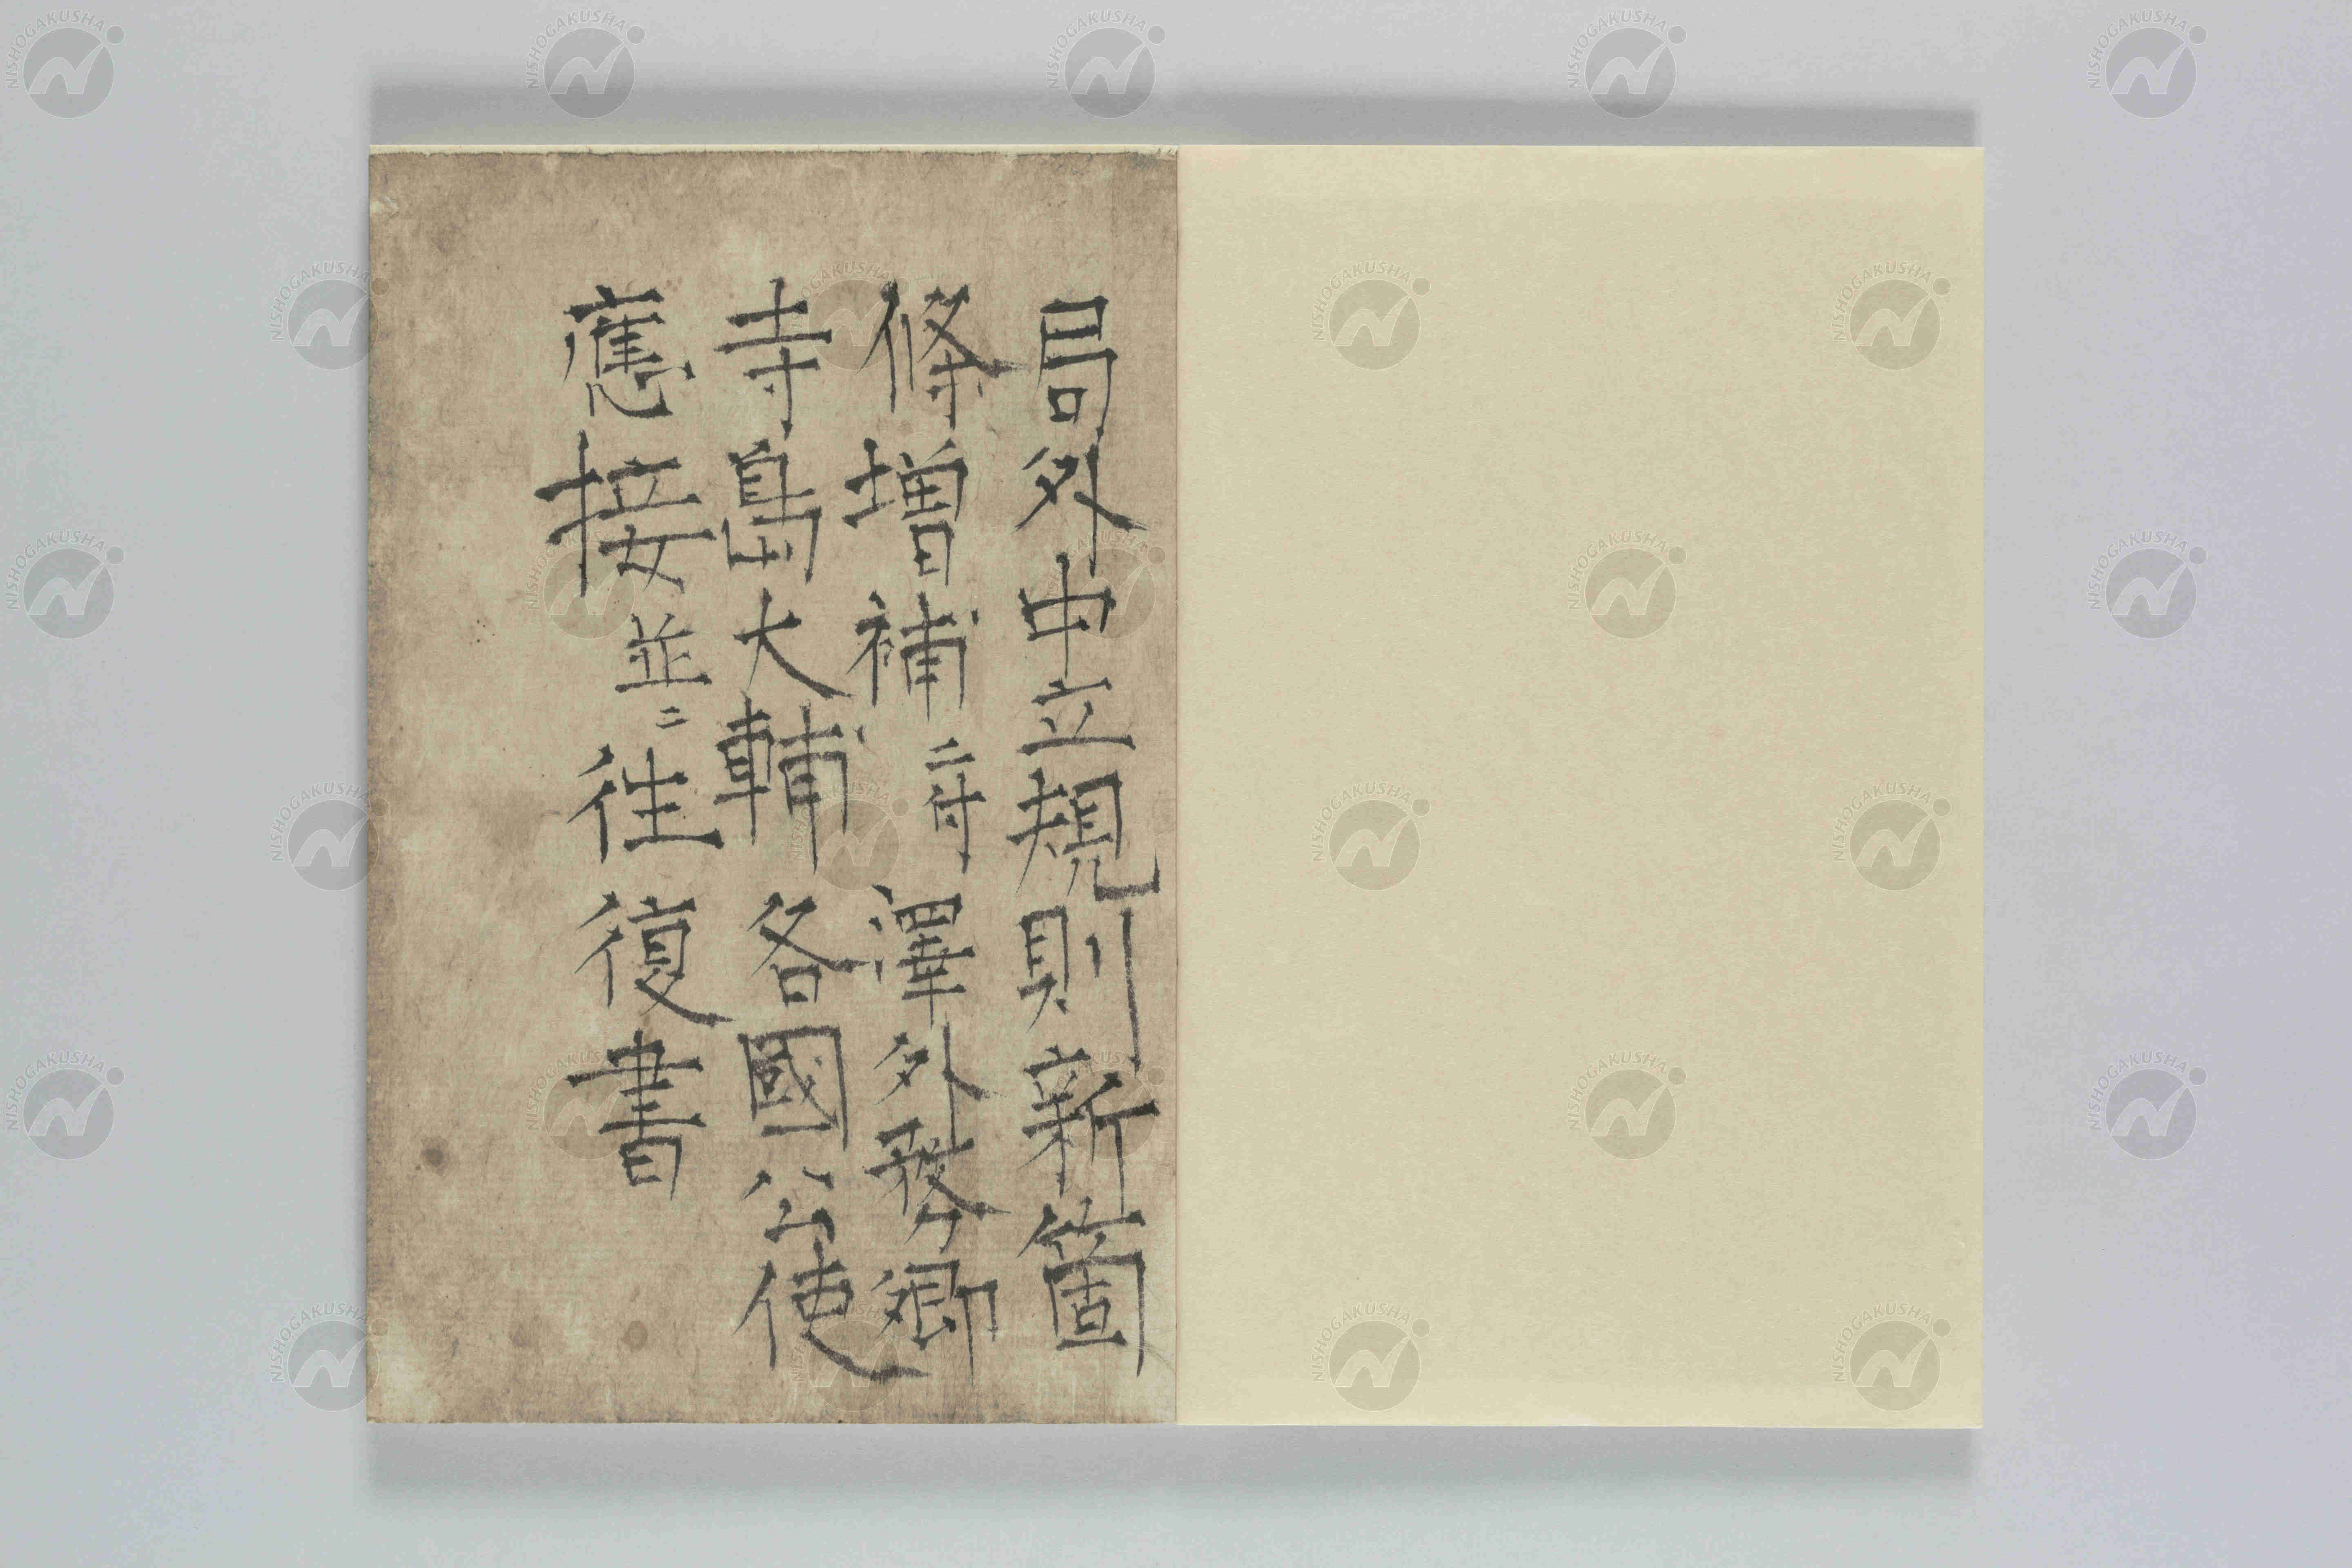 局外中立規則新箇
條増補ニ付澤外務卿
寺島大輔各國公使
應接並ニ徃復書
NISHOGAKUSHA